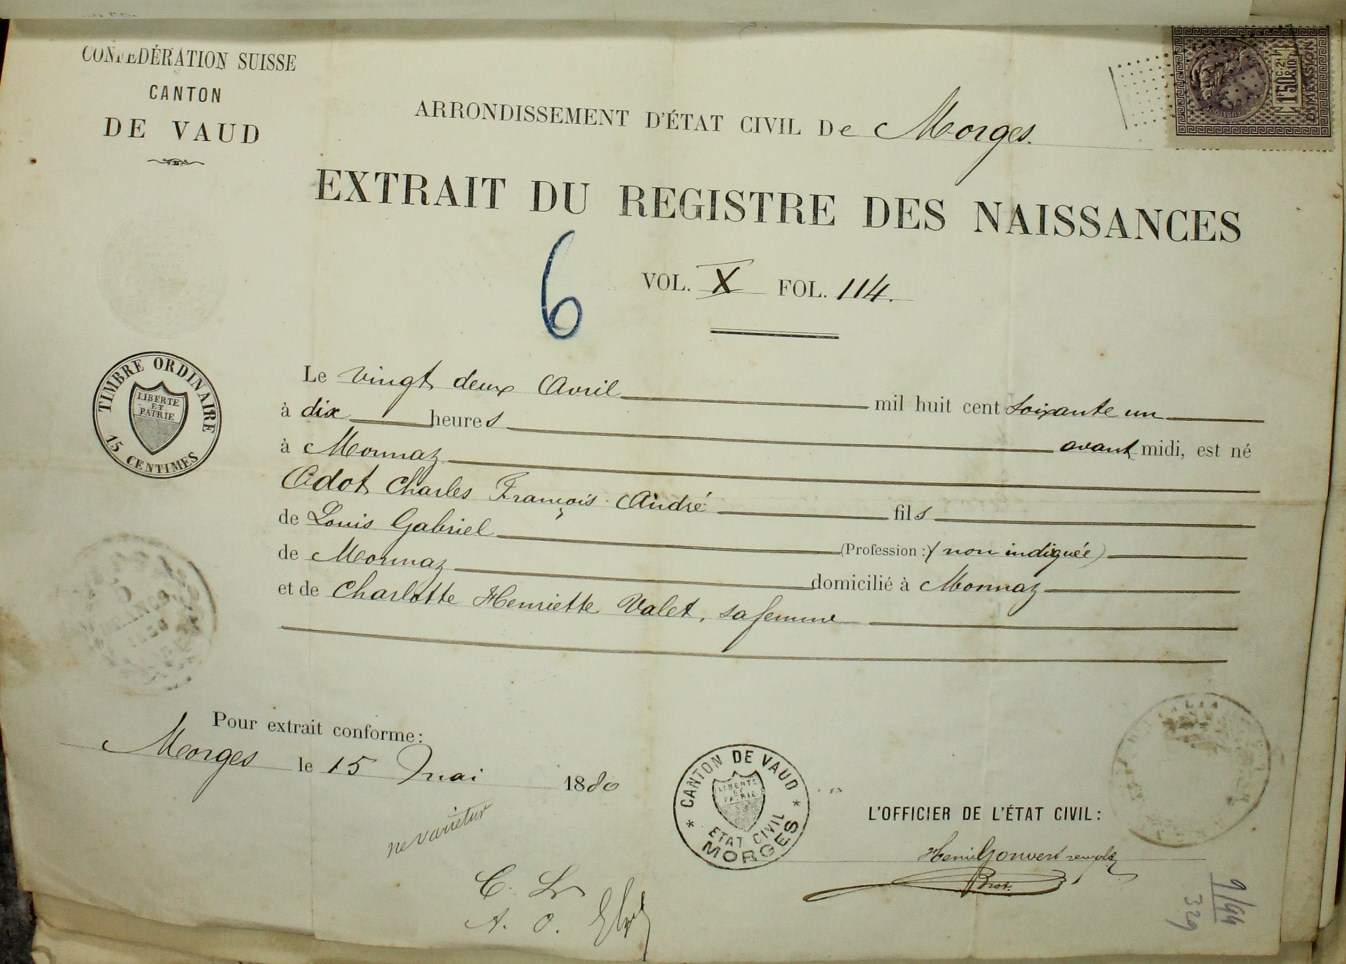 CONFÉDÉRATION SUISSE
CANTON
DE VAUD
ARRONDISSEMENT D'ÉTAT CIVIL De Morges.
1f50 & 10
DIMENSION
EXTRAIT DU REGISTRE DES NAISSANCES
6
VOL. X FOL. 114.
TIMBRE ORDINAIRE
LIBERTÉ
ET
PATRIE
15 CENTIMES
Le vingt deux Avril mil huit cent soixante un
à dix heures avant midi, est né
à Monnaz
Odot Charles François André fils
de Louis Gabriel (Profession :) non indiquée)
de Monnaz domicilié à Monnaz
et de Charlotte Henriette Valet, sa femme
Pour extrait conforme:
Morges le 15 mai 1880
ne varietur
CANTON DE VAUD
LIBERTÉ
ET
PATRIE
ETAT CIVIL
MORGES
L'OFFICIER DE L'ÉTAT CIVIL:
Henri Gonvert
A. O.
9/44
329